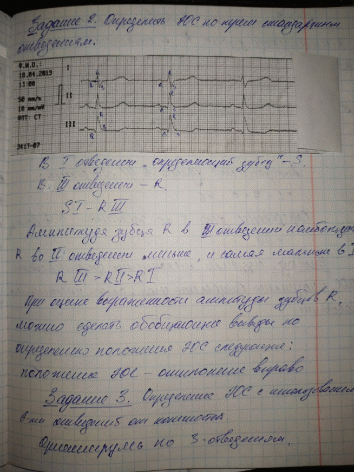 Задание 2. Определить ЭОС по трём стандартным
отведениям.
Ф.И.О.:
18.04.2013
13:00
50 mm/s
10 mm/mV
I
II
III
В I отведении "определяющий зубец" - S.
В III отведении - R.
SI - RIII
Амплитуда зубца R в III отведении наибольшая
R во II отведении меньше, и самая малая в I
R III > R II > R I
При оценке выраженности амплитуды зубцов R,
можно сделать обобщающие выводы по
определению положения ЭОС следующие:
положение ЭОС - отклонение вправо
Задание 3. Определение ЭОС с использованием
6-ти отведений от конечностей
Ориентируясь по 3-отведениям.